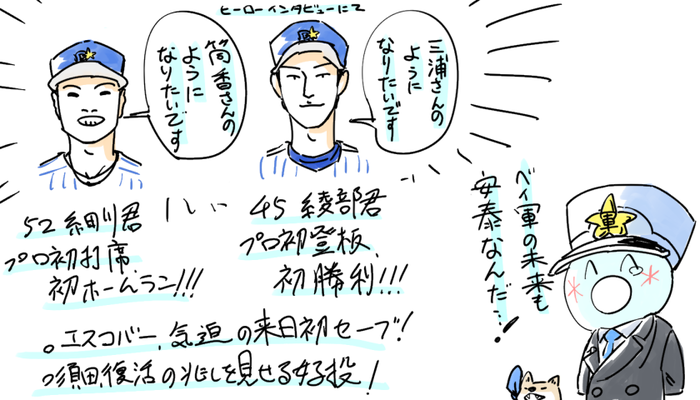 ヒーローインタビューにて
筒香さんの
ように
なりたいです
三浦さんの
ように
なりたいです
52 細川君
プロ初打席、
初ホームラン!!!
45 綾部君
プロ初登板、
初勝利!!!
。エスコバー、気迫の来日初セーブ!
須田、復活の兆しを見せる好投!
ベイ軍の未来も
安泰なんだ…!
軍